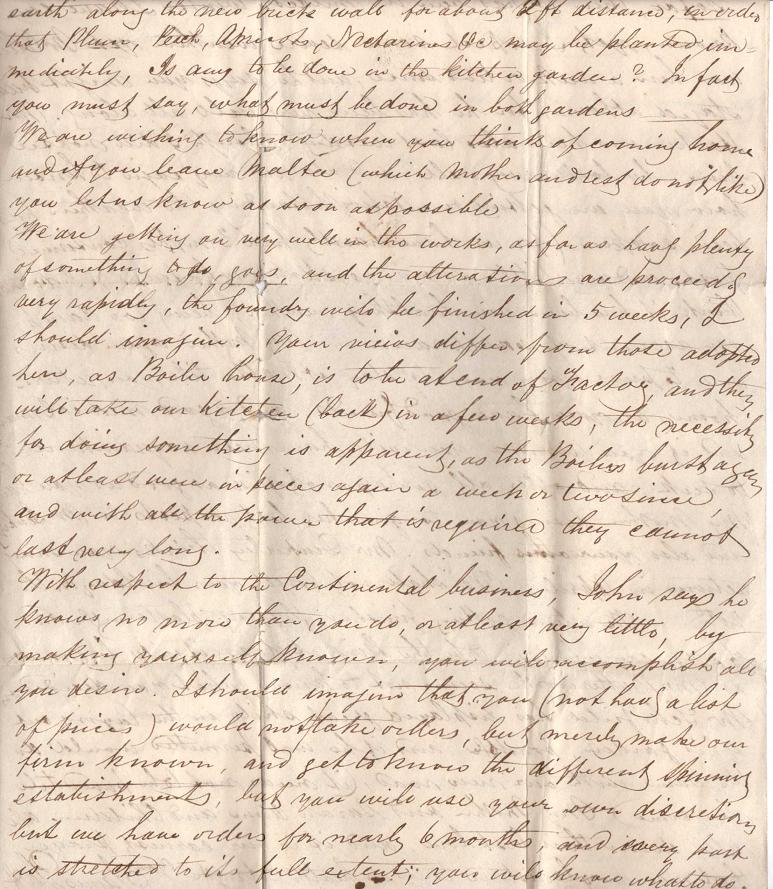 earth along the new brick wall for about 2 ft distance, in order
that Plum, Peach, Apricots, Nectarines &c may be planted im-
mediately, Is any to be done in the kitchen garden? In fact
you must say, what must be done in both gardens
We are wishing to know when you think of coming home
and if you leave Malta (which Mother and rest do not like)
you let us know as soon as possible
We are getting on very well in the works, as far as havg plenty
of something to do, goes, and the alterations are proceedg
very rapidly, the foundry will be finished in 5 weeks, I
should imagine. Your views differ from those adopted
here, as Boiler house, is to be at end of Factory, and they
will take our Kitchen (back) in a few weeks, the necessity
for doing something is apparent, as the Boilers burst again
or at least were in pieces again a week or two since,
and with all the power that is required they cannot
last very long.
With respect to the Continental business, John says he
knows no more than you do, or at least very little, by
making yourself known, you will accomplish all
you desire. I should imagine that you (not havg a list
of prices) would not take orders, but merely make our
firm known, and get to know the different spinning
establishments, but you will use your own discretion
but we have orders for nearly 6 months, and every part
is stretched to its full extent; you will know what to do.